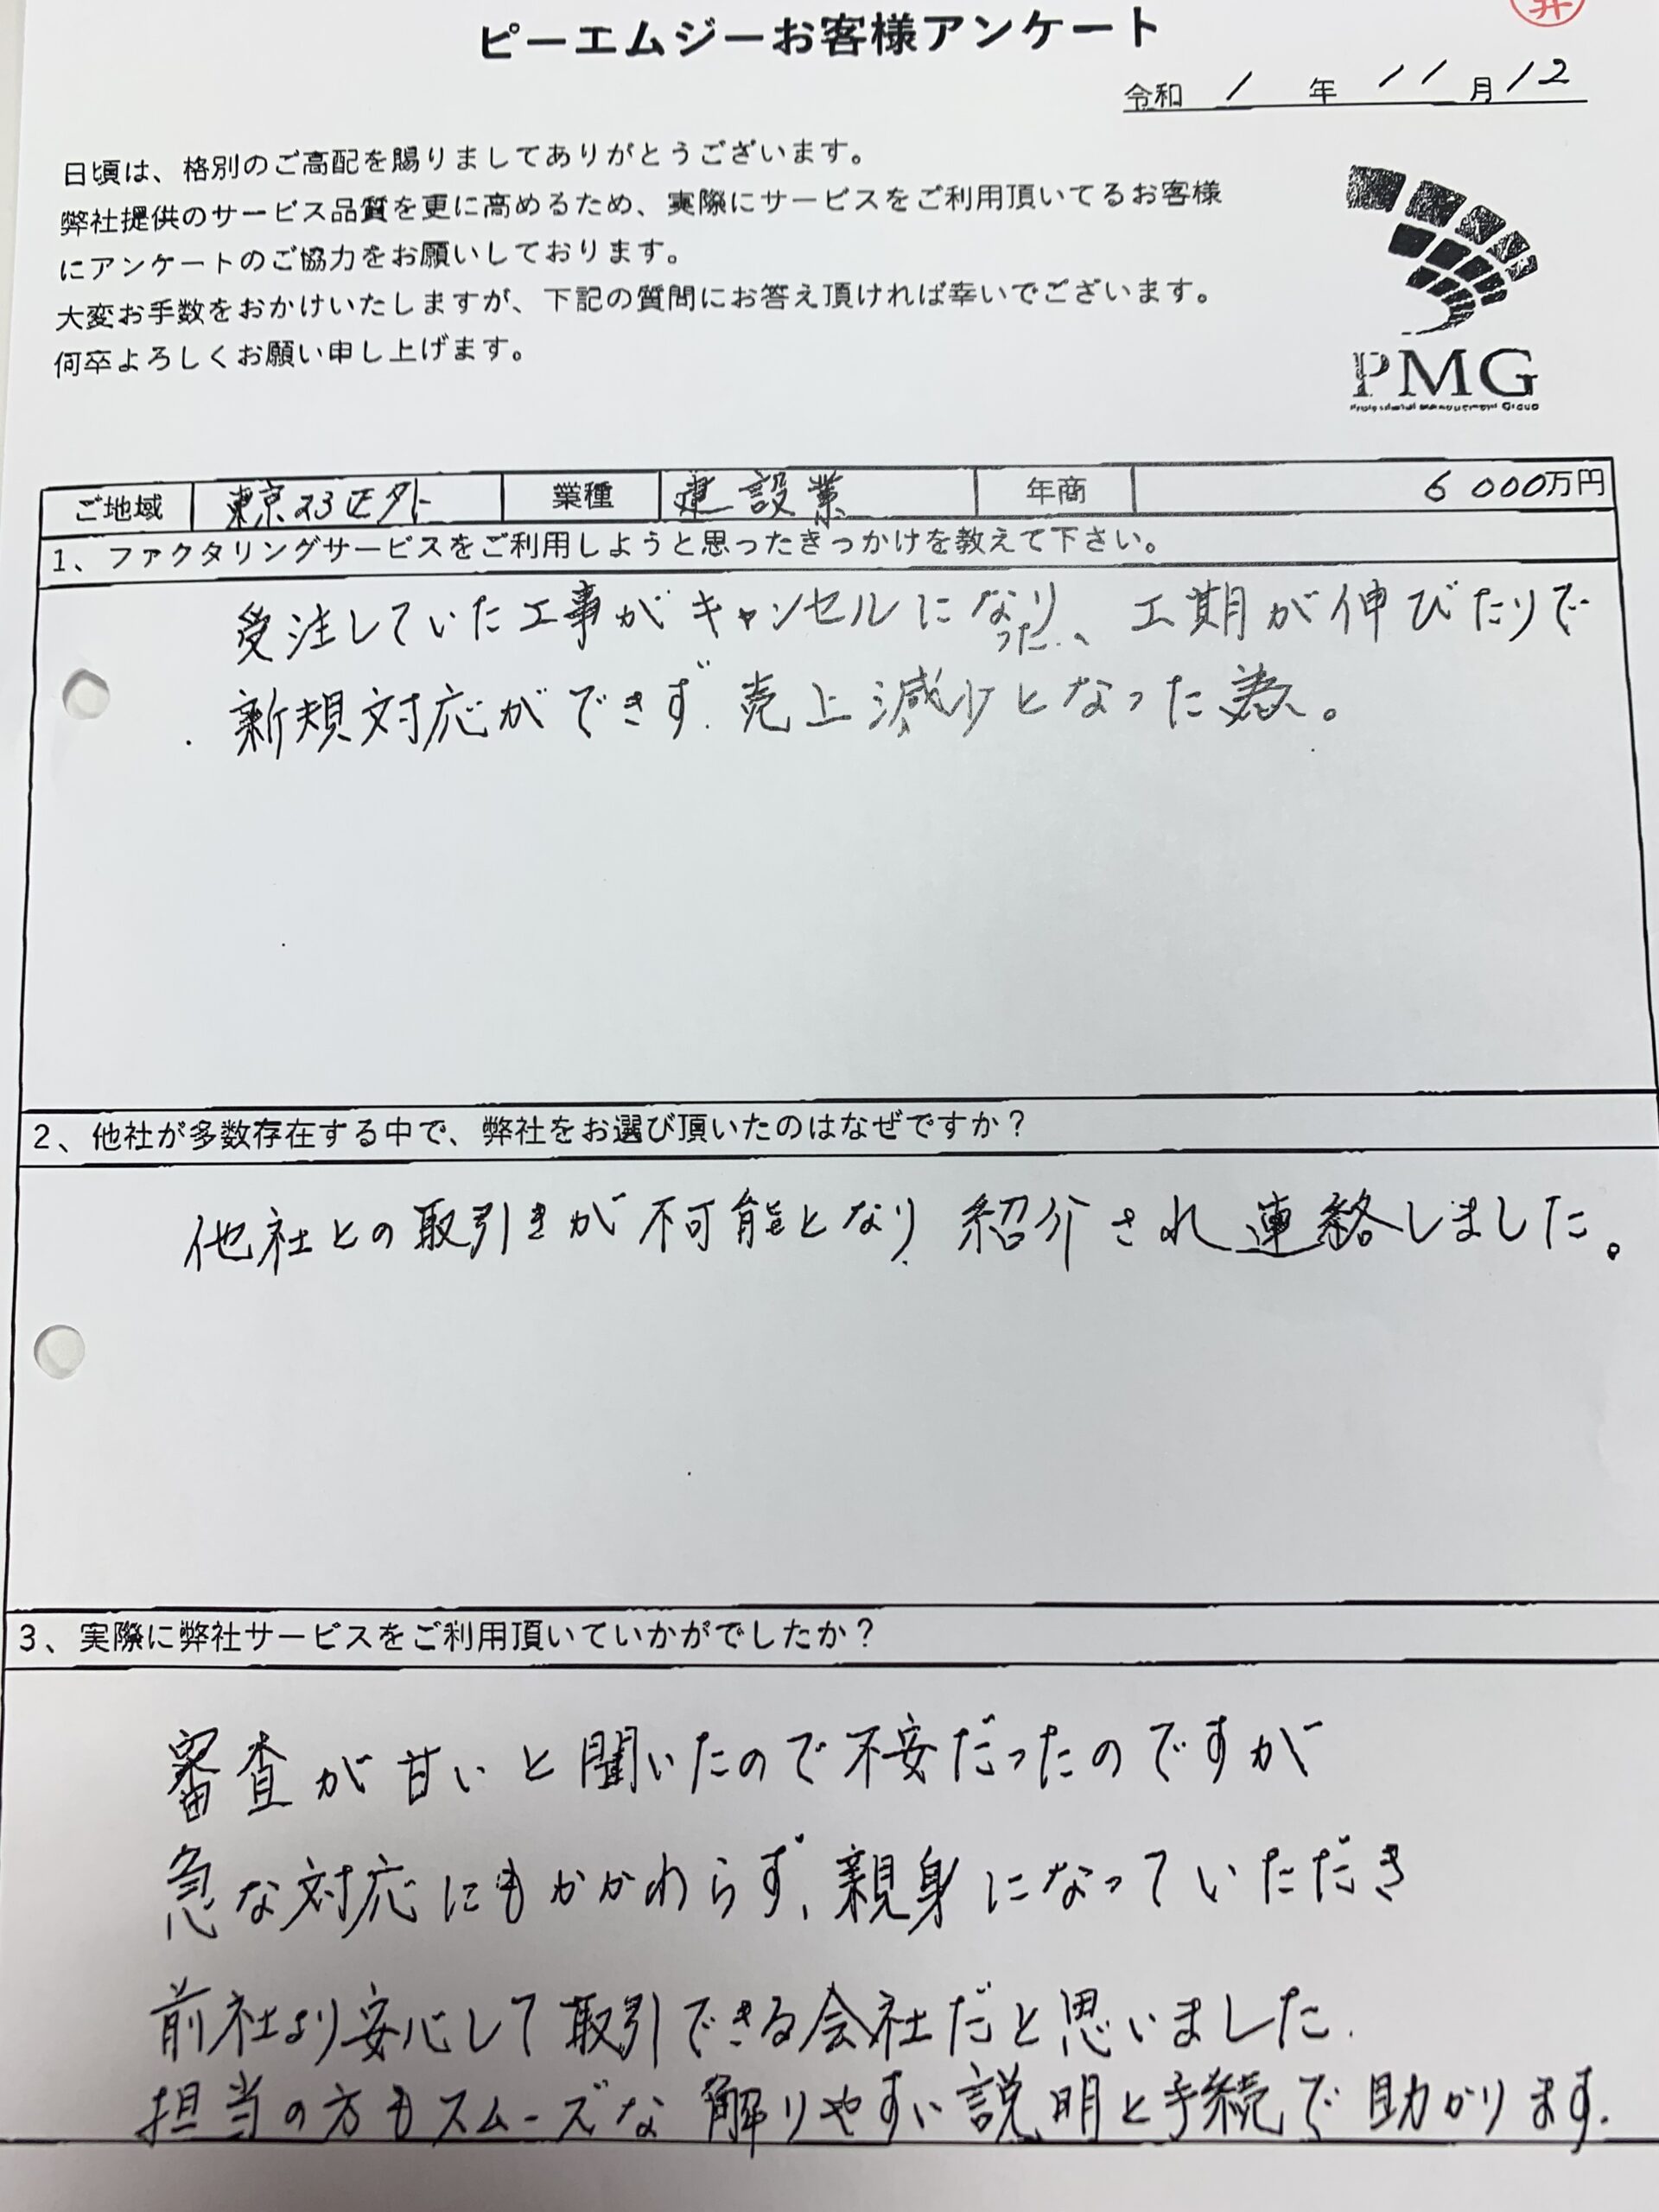 ピーエムジーお客様アンケート
令和 1 年 11 月 12
日頃は、格別のご高配を賜りましてありがとうございます。
弊社提供のサービス品質を更に高めるため、実際にサービスをご利用頂いてるお客様
にアンケートのご協力をお願いしております。
大変お手数をおかけいたしますが、下記の質問にお答え頂ければ幸いでございます。
何卒よろしくお願い申し上げます。
PMG
Professional Management Group
ご地域 東京23区外 業種 建設業 年商 6000万円
1、ファクタリングサービスをご利用しようと思ったきっかけを教えて下さい。
受注していた工事がキャンセルになり、工期が伸びたりで
った
新規対応ができず、売上減少となった為。
2、他社が多数存在する中で、弊社をお選び頂いたのはなぜですか？
他社との取引きが不可能となり、紹介され連絡しました。
3、実際に弊社サービスをご利用頂いていかがでしたか？
審査が甘いと聞いたので不安だったのですが
急な対応にもかかわらず、親身になっていただき
前社より安心して取引できる会社だと思いました.
担当の方もスムーズな解りやすい説明と手続で助かります.